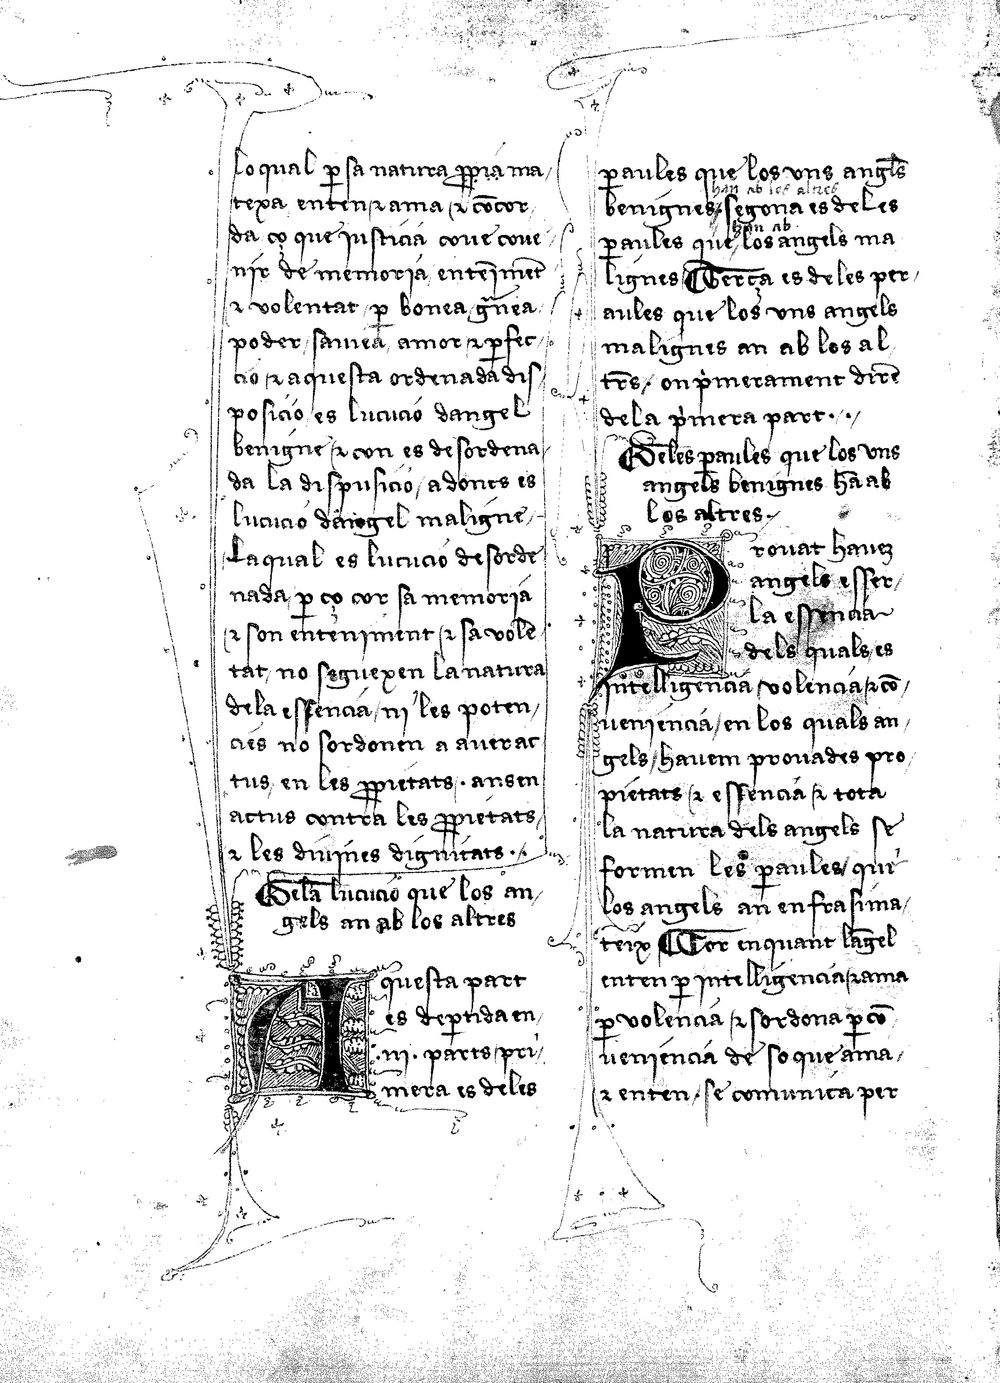 lo qual ꝑ sa natura ꝓpia ma/
texa enten ⁊ ama ⁊ cōcor,
da ço que justicia coue coue
nir de memoria entēimēt
⁊ volentat ꝑ bonea gn̄ea
poder sauiea amor ⁊ ꝑfec,
cio ⁊ aquesta ordenada dis/
posicio es lucucio dangel
benigne ⁊ con es desordena/
da la dispusicio adoncs es
lucucio dangel maligne/
La qual es lucucio desorde
nada ꝑ ço cor sa memoria
⁊ son enteniment ⁊ sa volē
tat no seguexen la natura
dela essencia ni les poten/
cies no sordonen a auer ac
tus en les ꝓpietats · ans en
actus contra les ꝓpietats,
⁊ les diuines dignitats ·,
Dela lucucio que los an/
gels an ab los altres
Aquesta part
es deꝑtida en,
·iii· parts pri/
mera es de les
ꝑaules que los vns angls
han ab los altres
benignes segona es de les
han ab
ꝑaules que los angels ma
lignes Terça es de les per/
aules que los vns angels
malignes an ab los al,
trēs, on pͥmerament dirē
de la pͥmera part · ,
Deles ꝑaules que los vns
angels benignes hā ab
los altres
Prouat hauez
angels esser,
la essencia
dels quals es
intelligencia volencia ⁊ cō,
ueniencia en los quals an,
gels hauem prouades pro,
pietats ⁊ essencia ⁊ tota
la natura dels angels se
formen les ꝑaules que
los angels an en fra si ma/
teix Cor en quant langel
enten ꝑ intelligencia ⁊ ama
ꝑ volencia ⁊ sordona ꝑ cō
ueniencia de so que ama,
⁊ enten se comunica per